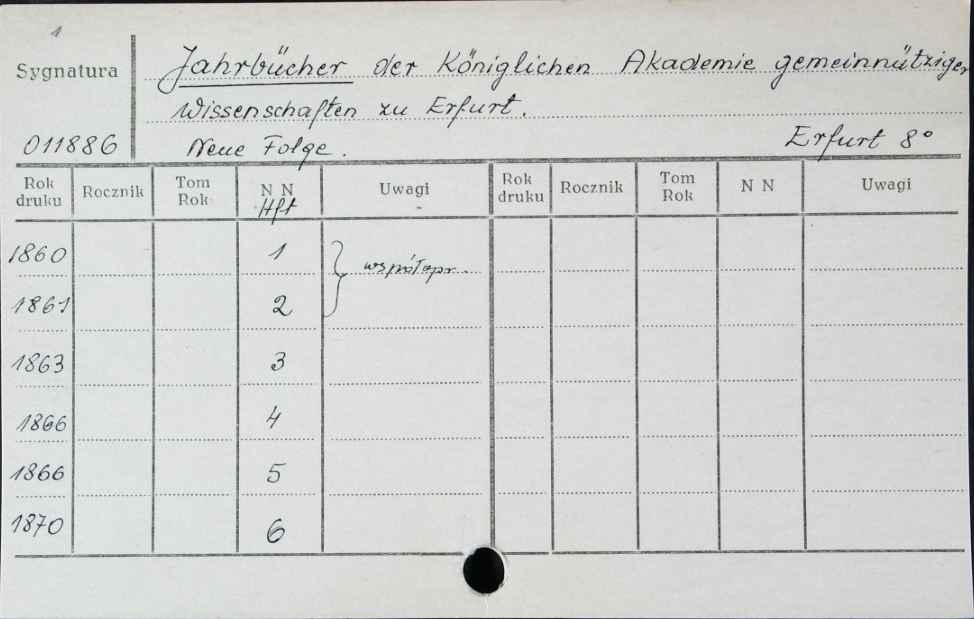 1
Sygnatura
Jahrbücher der Königlichen Akademie gemeinnütziger
Wissenschaften zu Erfurt.
011886
Neue Folge.
Erfurt 8°
Rok druku Rocznik Tom Rok N N Hft Uwagi Rok druku Rocznik Tom Rok N N Uwagi
1860 1 } współopr.
1861 2
1863 3
1866 4
1866 5
1870 6